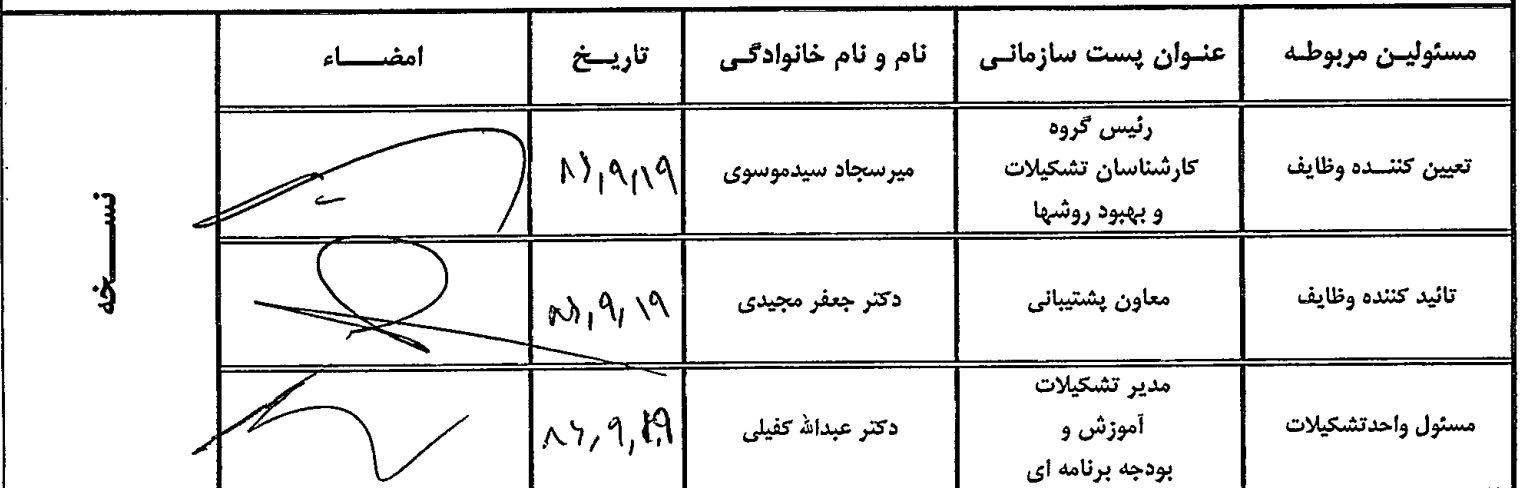 مسئولیـن مربوطـه عنـوان پست سازمانـی نام و نام خانوادگـی تاریــخ امضــــاء
تعیین کننــده وظایف رئیس گروه
کارشناسان تشکیلات
و بهبود روشها میرسجاد سیدموسوی
تائید کننده وظایف معاون پشتیبانی دکتر جعفر مجیدی
مسئول واحدتشکیلات مدیر تشکیلات
آموزش و
بودجه برنامه ای دکتر عبدالله کفیلی
نســـــخه